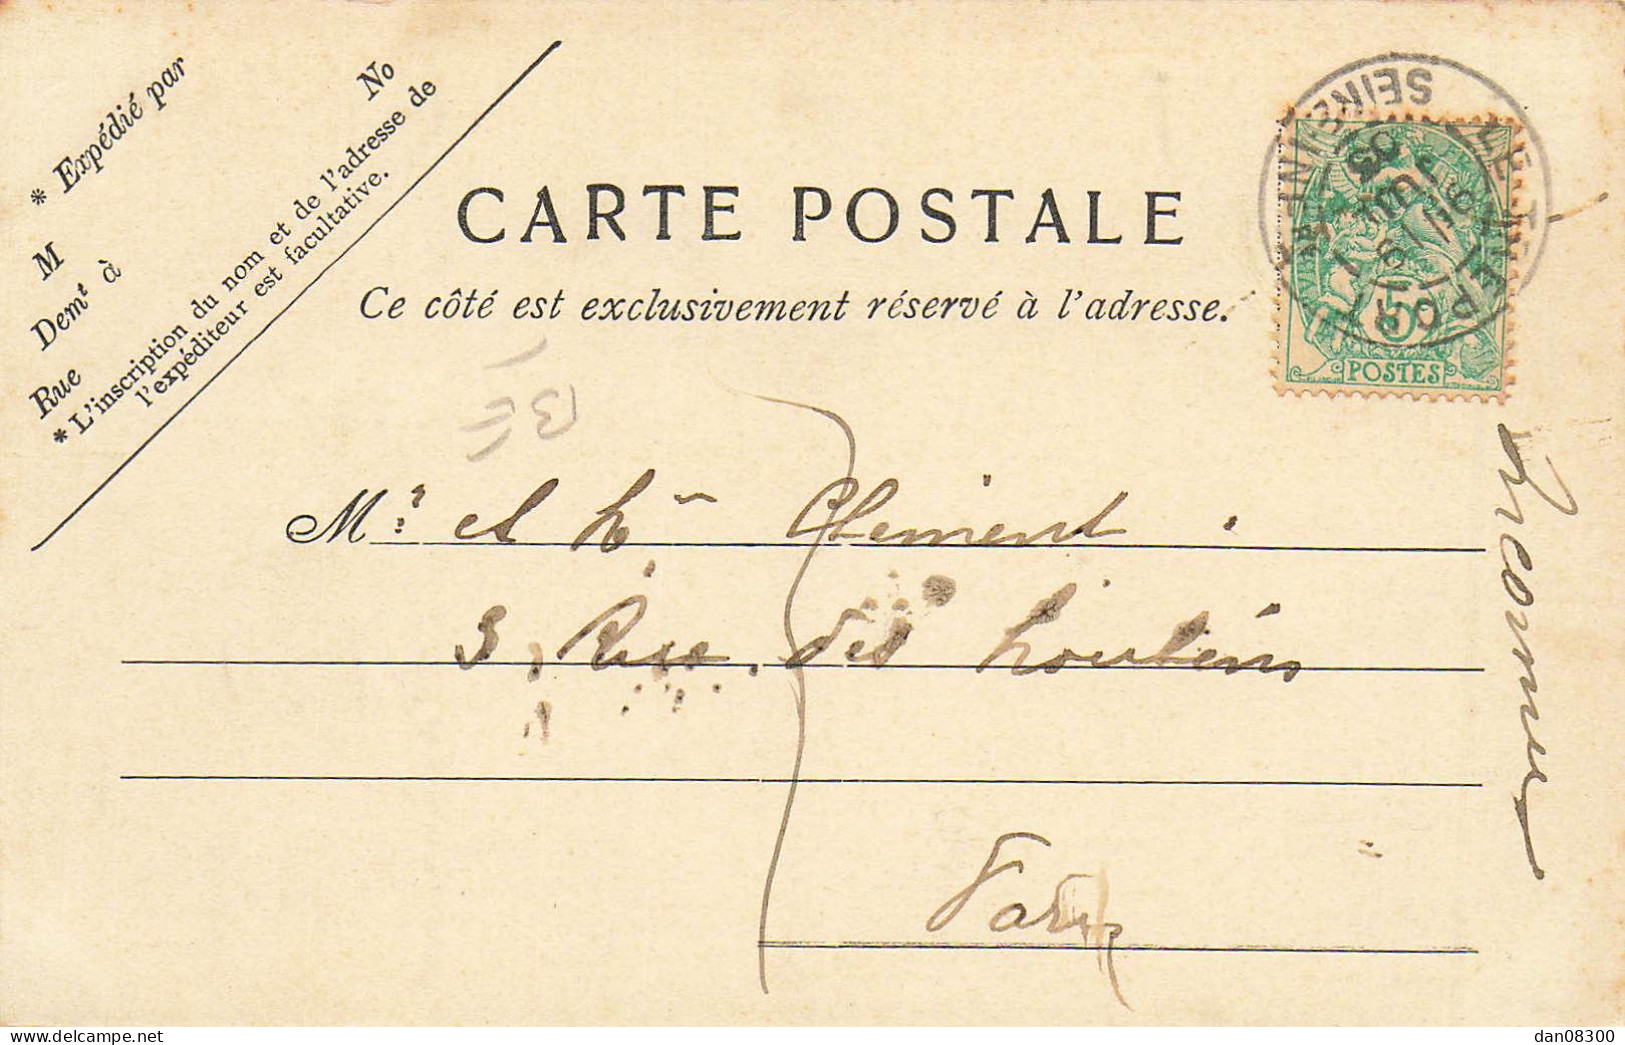 * Expédié par
No
M
Demt à
Rue
* L'inscription du nom et de l'adresse de
l'expéditeur est facultative.
CARTE POSTALE
Ce côté est exclusivement réservé à l'adresse.
5
POSTES
05
BE
Mr et Mme Clement
3, Rue des
Paris
Inconnus
dan08300